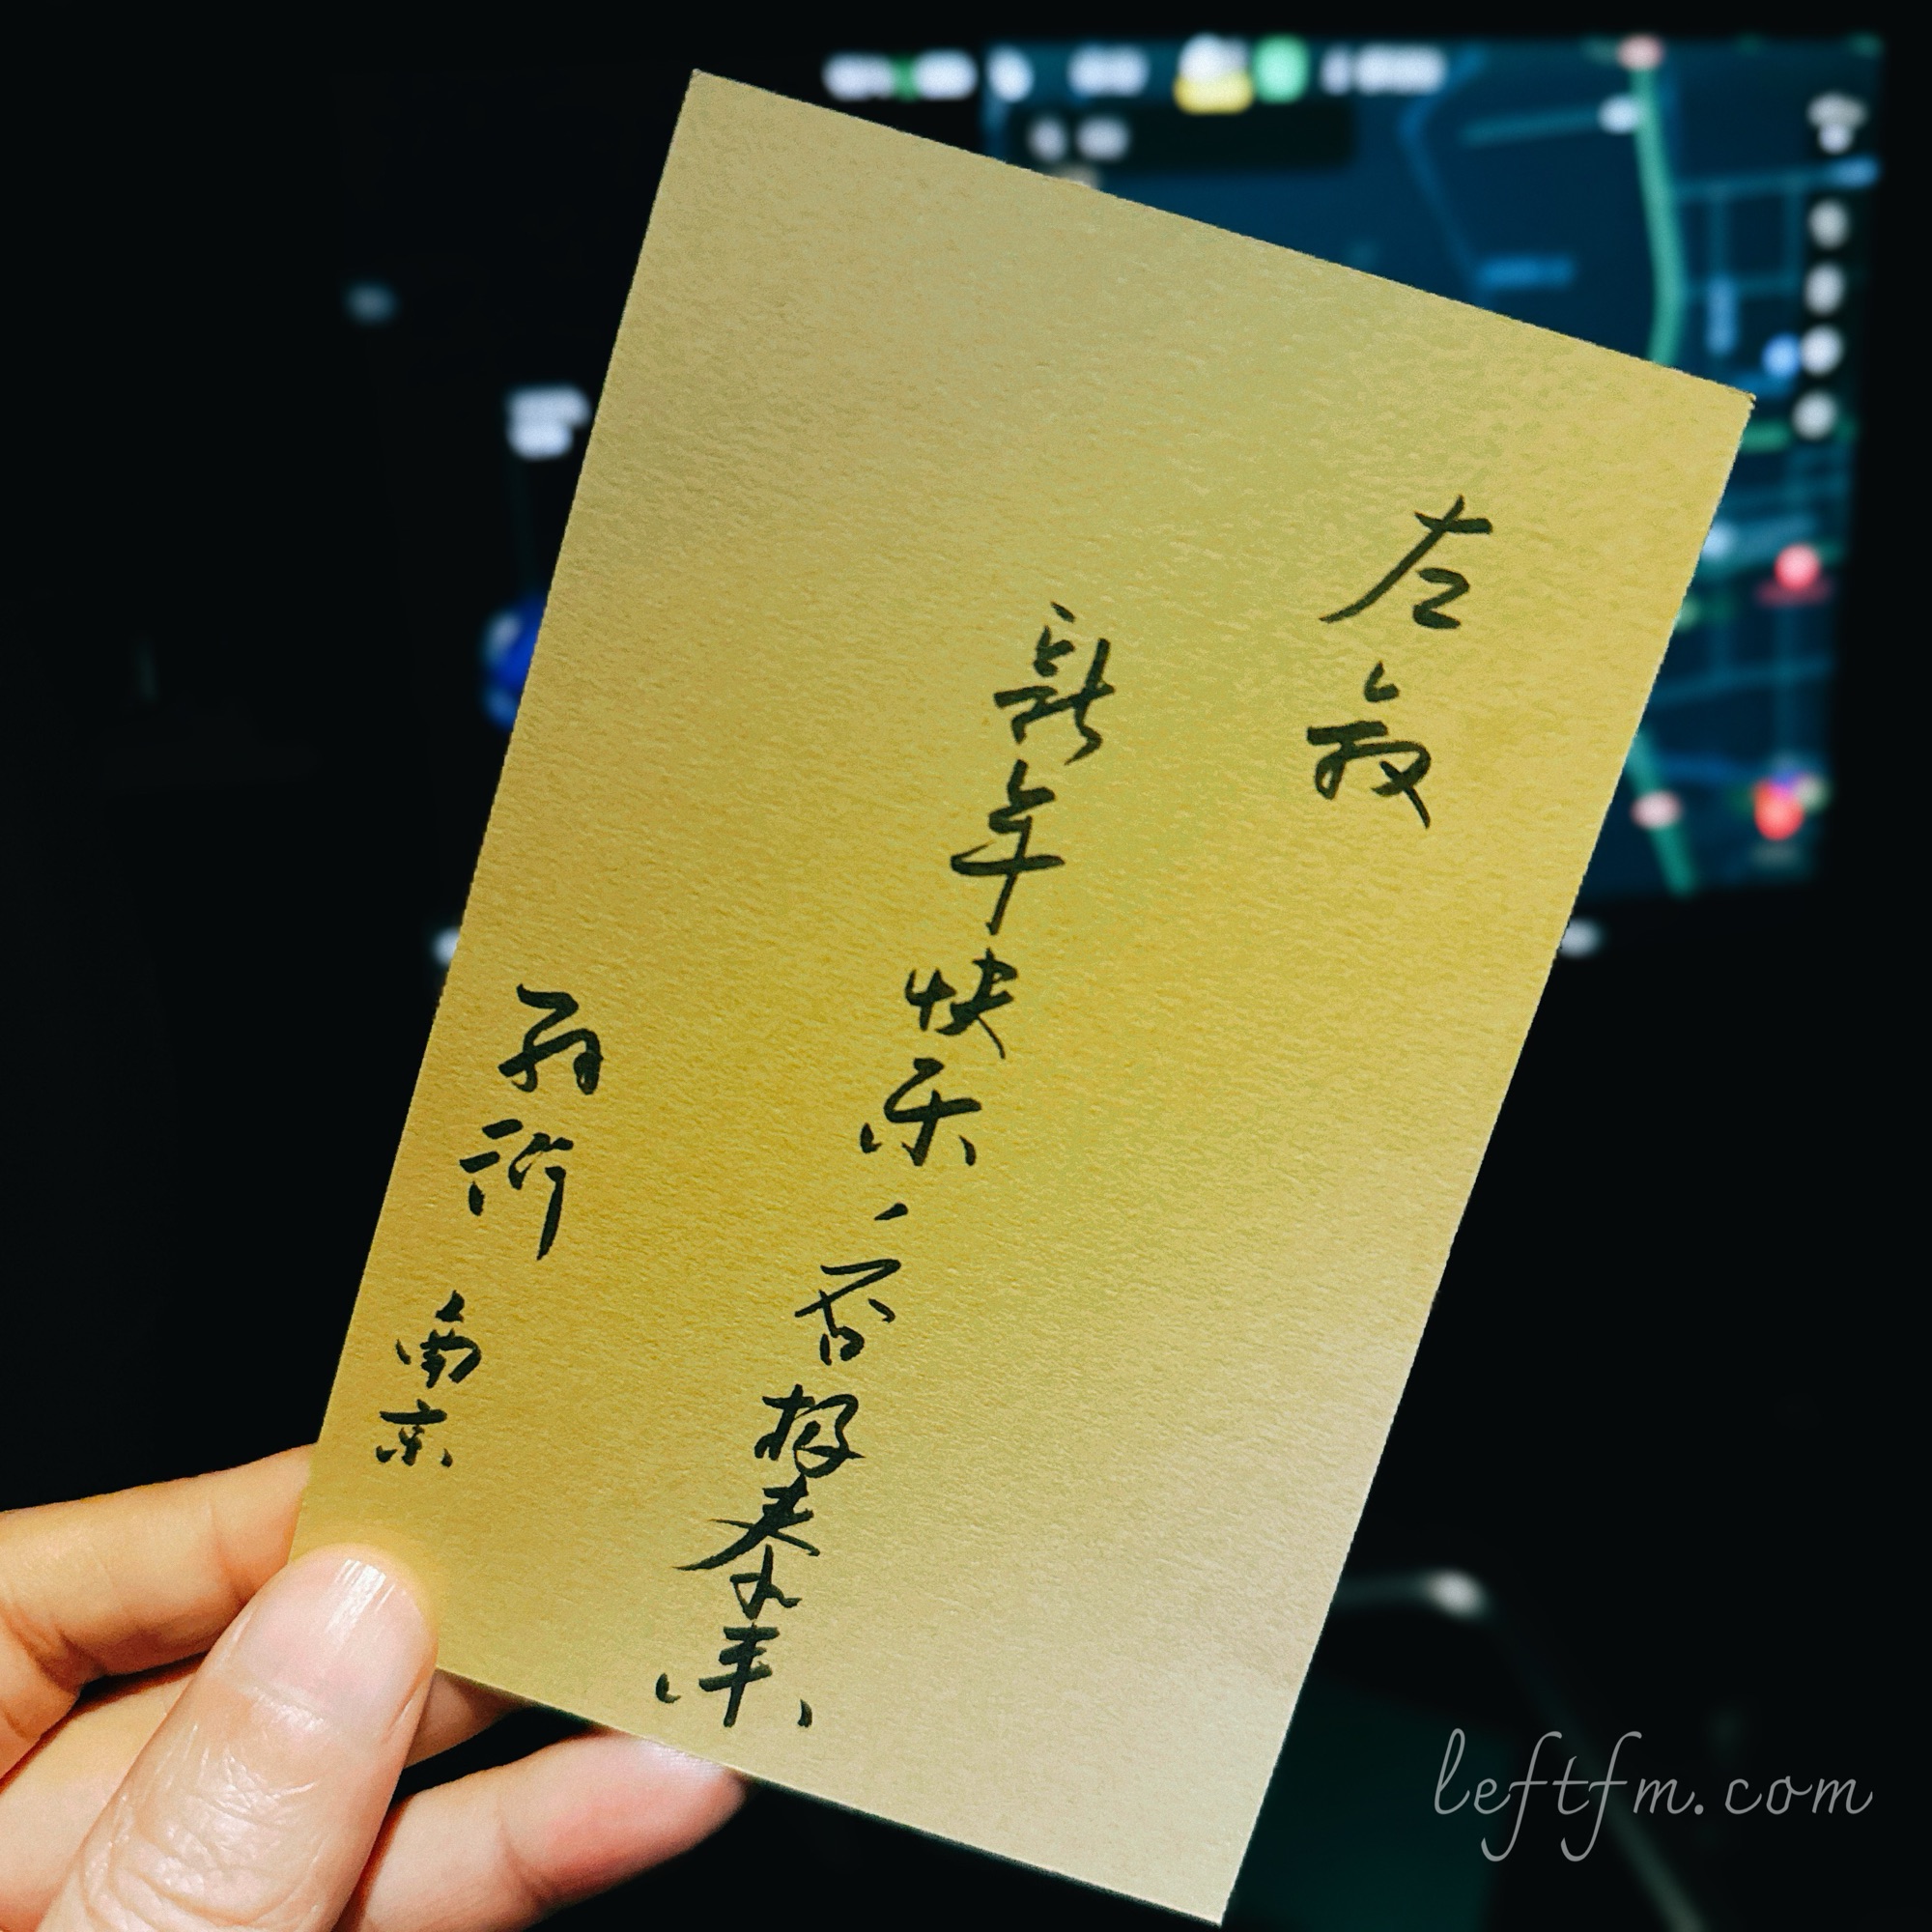 左叔
新年快乐、否极泰来
南京
leftfm.com